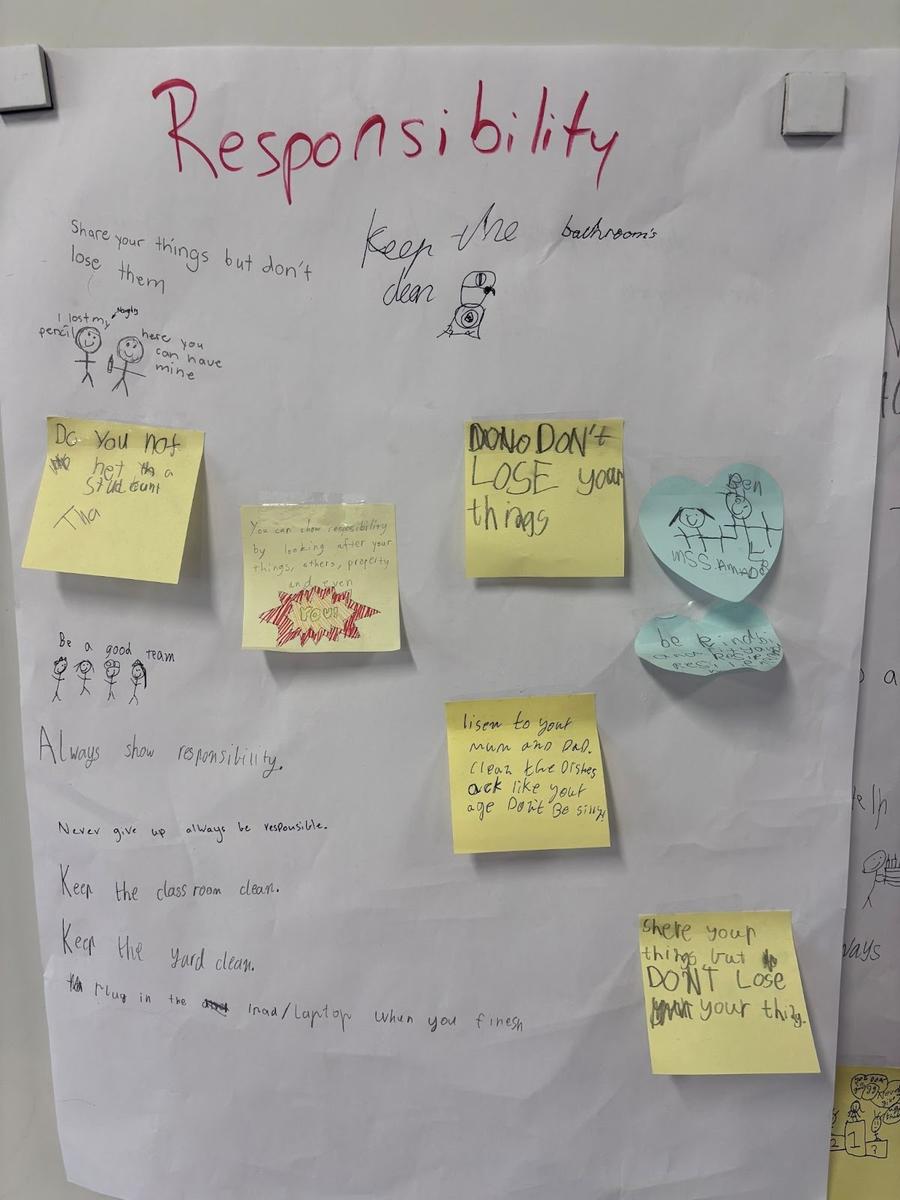 Responsibility
Share your things but don't
lose them
Keep the bathroom's
clean
I lost my
pencil
here you
can have
mine
Do you not
het a
Tha
DONO DON't
LOSE your
things
Ben
You can show resposibility
by looking after your
things, others, property
and even
YOU!
be kind
Be a good team
lisen to your
mum and Dad.
Clean the Dishes
ack like your
age Don't Be silly!
Always show responsibility.
Never give up always be responsible.
Keep the class room clean.
Keep the yard clean.
Plug in the ipad/laptop when you finesh
Shere your
things but
DON'T Lose
your thing.
1